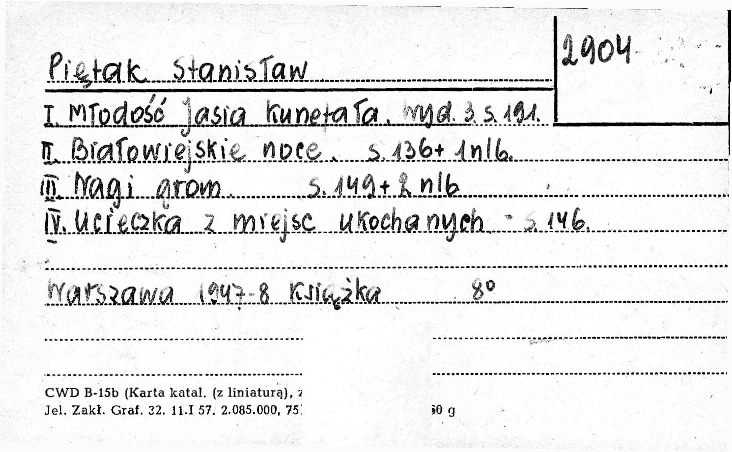 2904
Piętak Stanisław
I. Młodość Jasia Kunefała. Wyd. 3. s. 191.
II. Białowiejskie noce. s. 136 + 1 nlb.
III. Nagi grom. s. 149 + 2 nlb
IV. Ucieczka z miejsc ukochanych - s. 146.
Warszawa 1947-8 Książka 8°
CWD B-15b (Karta katal. (z liniaturą), z
Jel. Zakł. Graf. 32. 11.I 57. 2.085.000, 75 60 g